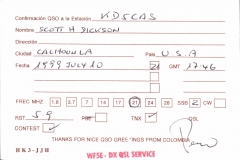 Confirmación QSO a la Estación KD5CAS
Nombre SCOTT H DICKSON
Ciudad CALHOUNLA País U.S.A
Fecha 1999 JULY 10 21 GMT 17:46
FREC MHZ 1.8 3.5 7 14 21 24 28 SSB 2 CW
RST 5.9 PSE TNX ✓ QSL
CONTEST ✓
THANKS FOR NICE QSO GREETINGS FROM COLOMBIA
HK3-JJH WF5E - DX QSL SERVICE